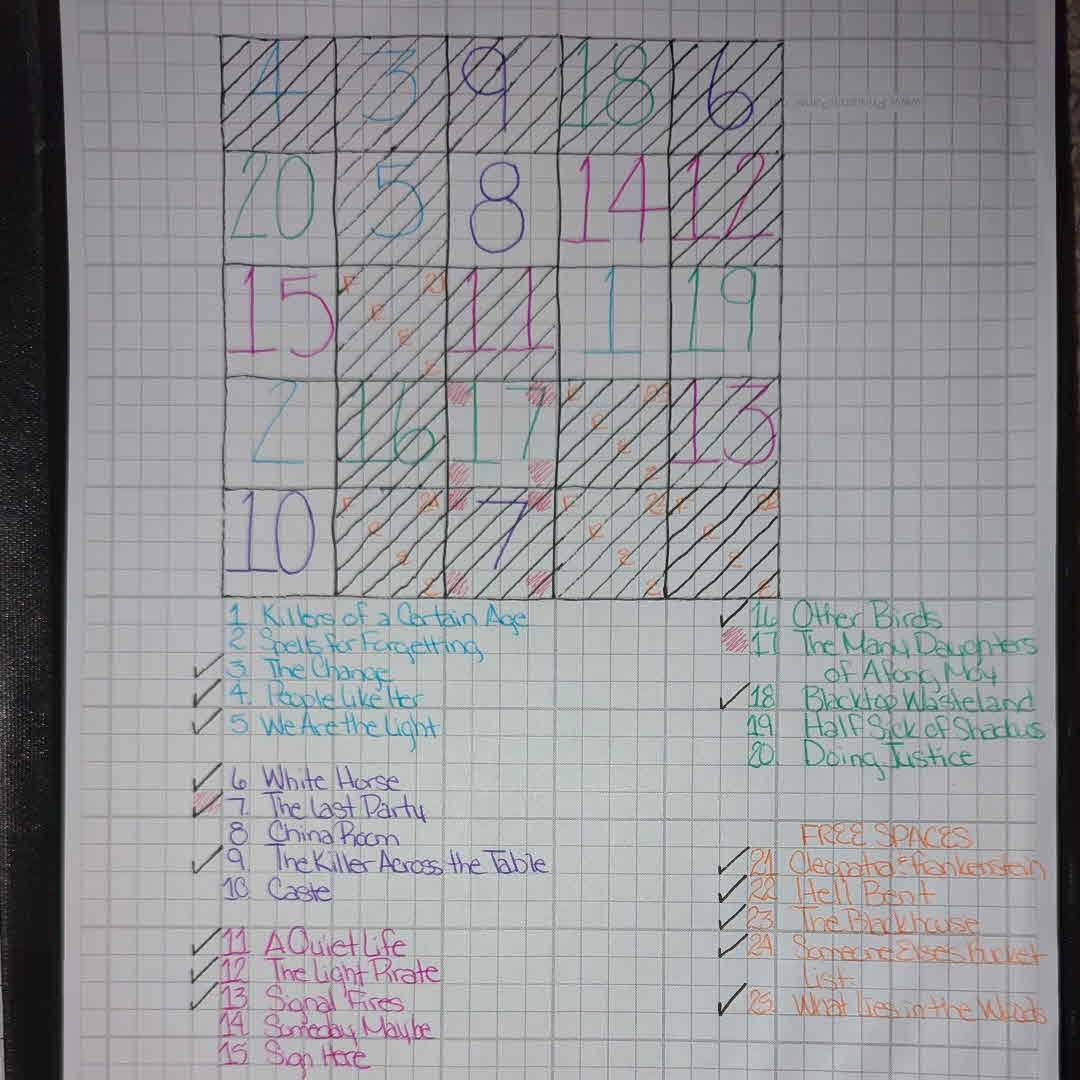 4 3 9 18 6
20 5 8 14 12
15 FREE 21 11 1 19
2 16 17 FREE 13
10 FREE 24 7 FREE
1 Killers of a Certain Age
2 Spells for Forgetting
3. The Change
4. People Like Her
5 We Are the Light
6 White Horse
7. The Last Party
8 China Room
9. The Killer Across the Table
10. Caste
11 A Quiet Life
12 The Light Pirate
13 Signal Fires
14 Someday, Maybe
15 Sign Here
16 Other Birds
17 The Many Daughters
of Afong Moy
18 Blacktop Wasteland
19 Half Sick of Shadows
20. Doing Justice
FREE SPACES
21 Cleopatra & Frankenstein
22 Hell Bent
23 The Blackhouse
24 Someone Else's Bucket
List
25. What Lies in the Woods